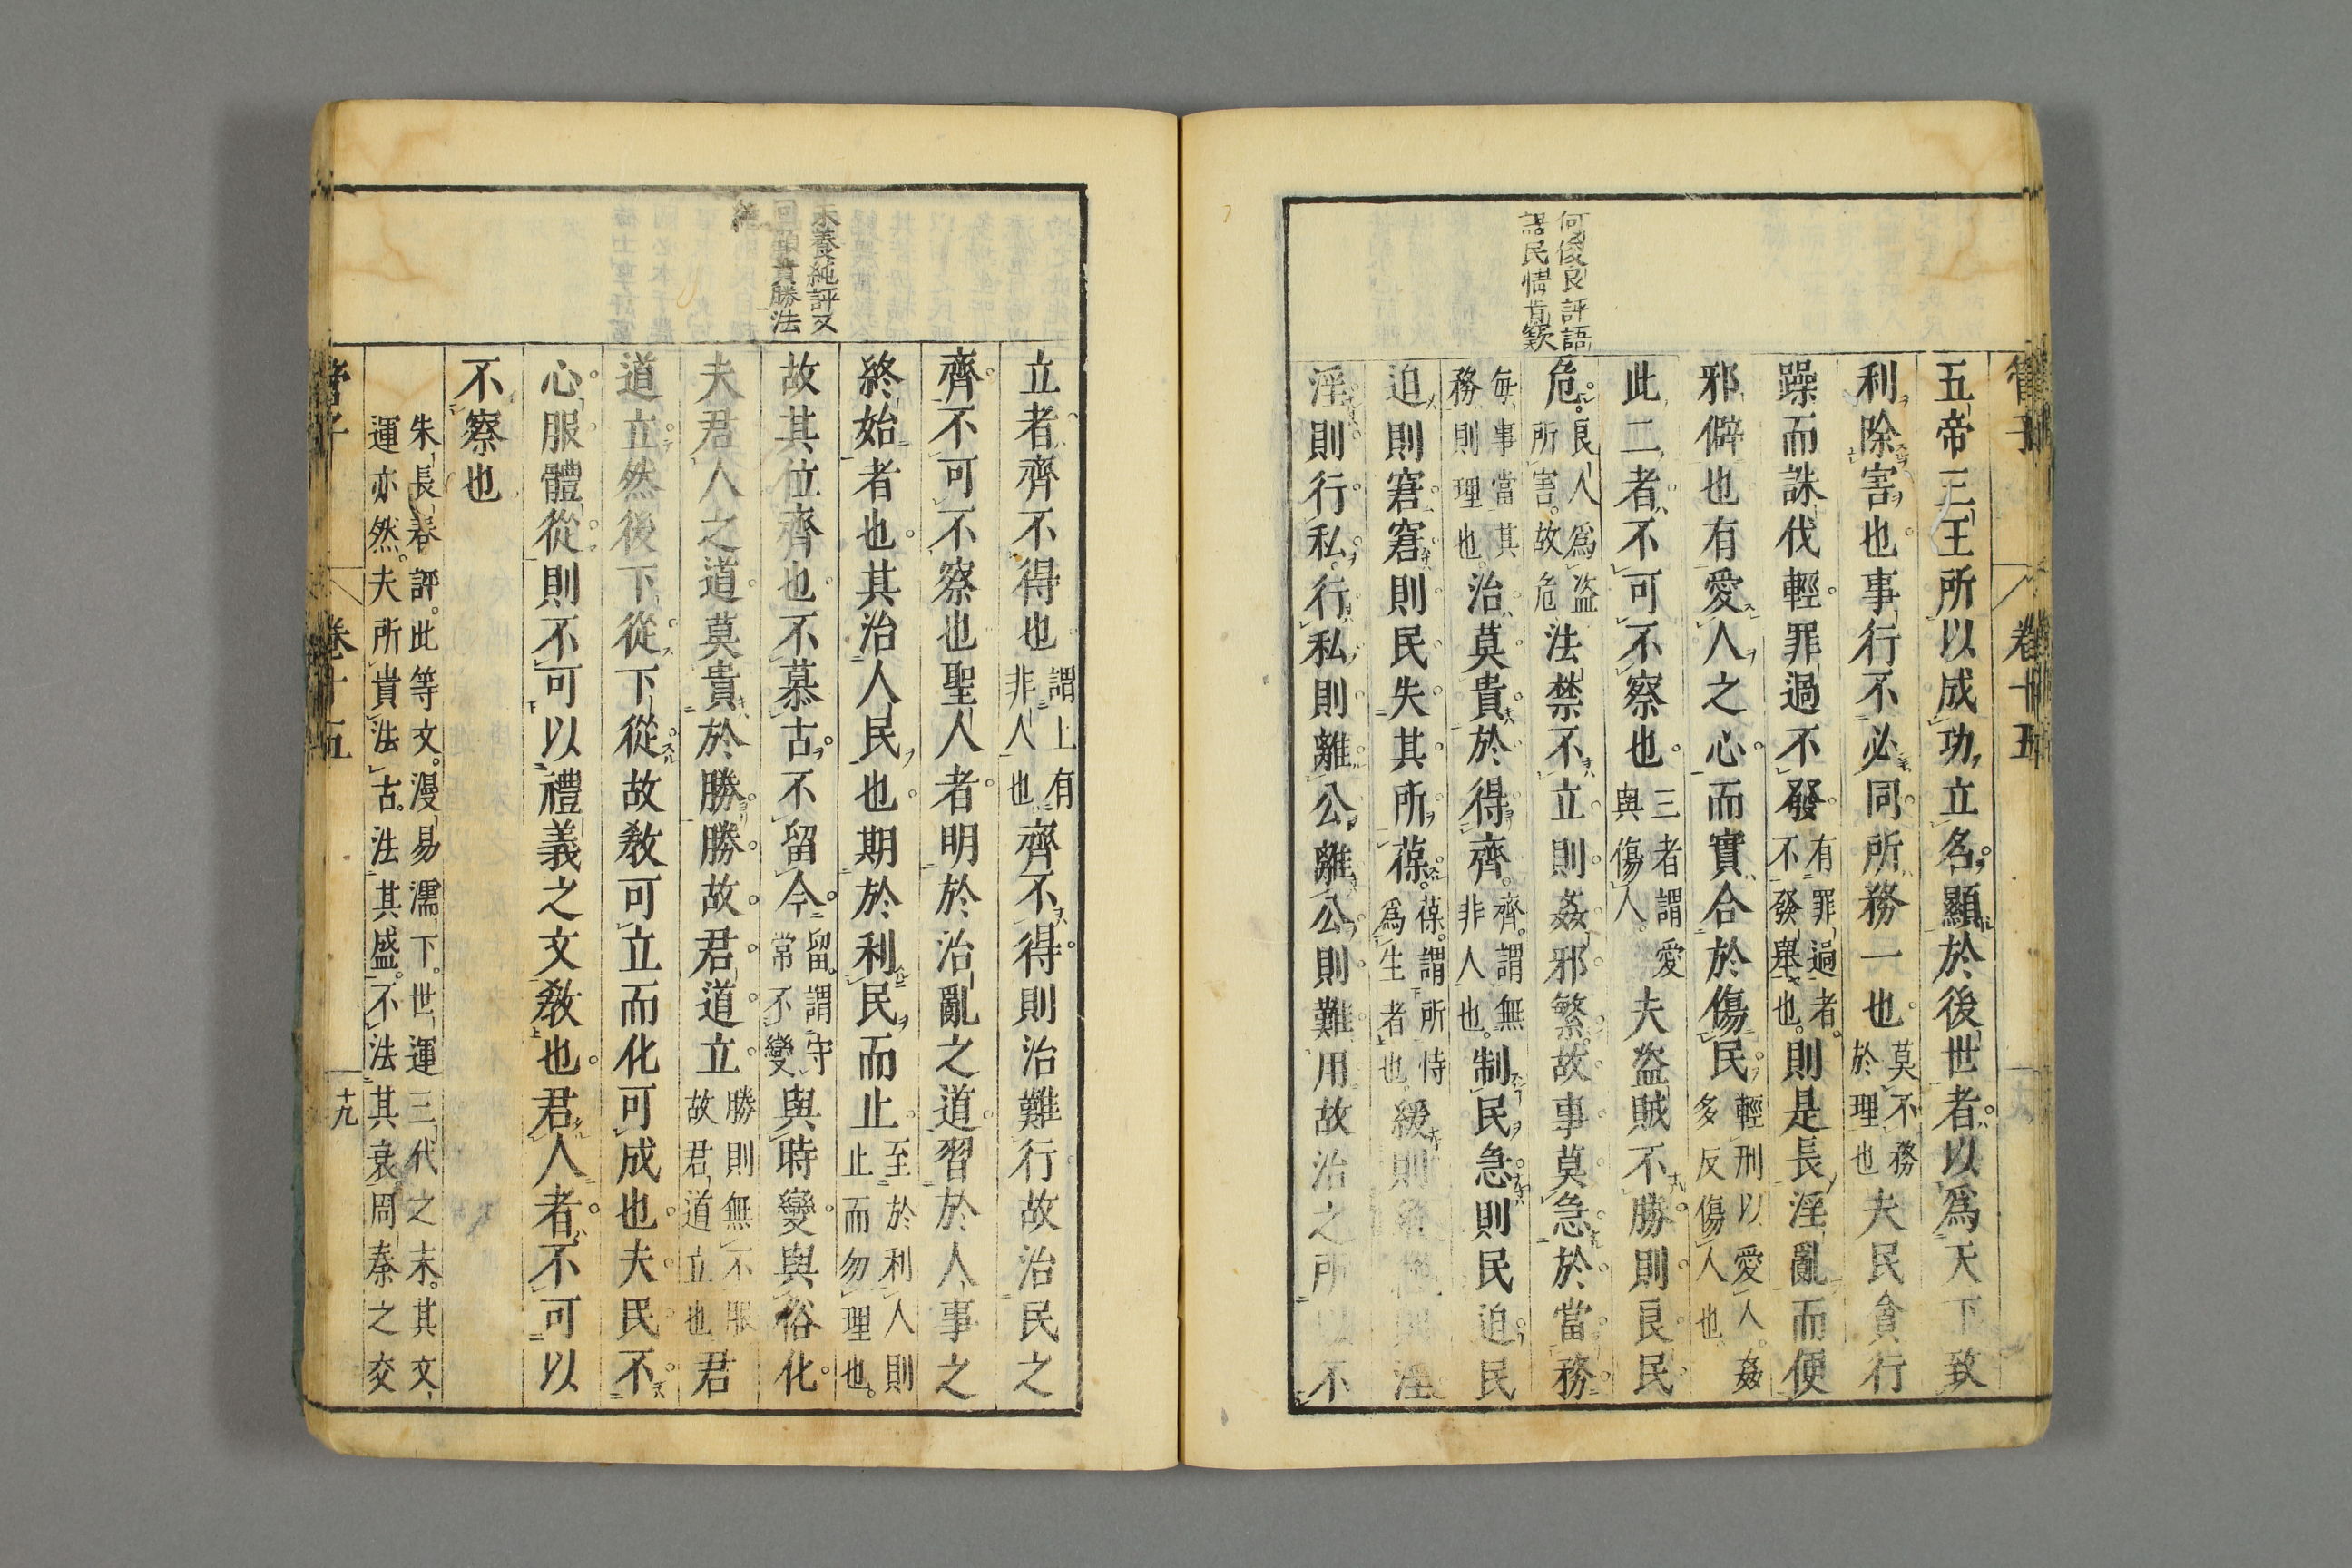 管子
卷十五
何俊良評語
語民情肯窾
五帝三王所以成功立名顯於後世者以爲天下致
利除害也事行不必同所務一也莫不務於理也夫民貪行
躁而誅伐輕罪過不發有罪過者不發舉也則是長淫亂而便
邪僻也有愛人之心而實合於傷民輕刑以愛人姦多反傷人也
此二者不可不察也三者謂愛與傷人夫盜賊不勝則良民
危良人爲盜所害故危法禁不立則姦邪繁故事莫急於當務
每事當其務則理也治莫貴於得齊齊謂無非人也制民急則民迫民
迫則窘窘則民失其所葆葆謂所恃爲生者也緩則縱縱則淫
淫則行私行私則離公離公則難用故治之所以不
朱養純評又
貴勝法
立者齊不得也謂上有非人也齊不得則治難行故治民之
齊不可不察也聖人者明於治亂之道習於人事之
終始者也其治人民也期於利民而止至於利人則止而勿理也
故其位齊也不慕古不留今留謂守常不變與時變與俗化
夫君人之道莫貴於勝勝故君道立勝則無不服故君道立也君
道立然後下從下從故教可立而化可成也夫民不
心服體從則不可以禮義之文教也君人者不可以
不察也
朱長春評此等文漫易濡下世運三代之末其文
運亦然夫所貴法古法其盛不法其衰周秦之交
管子
卷十五
十九